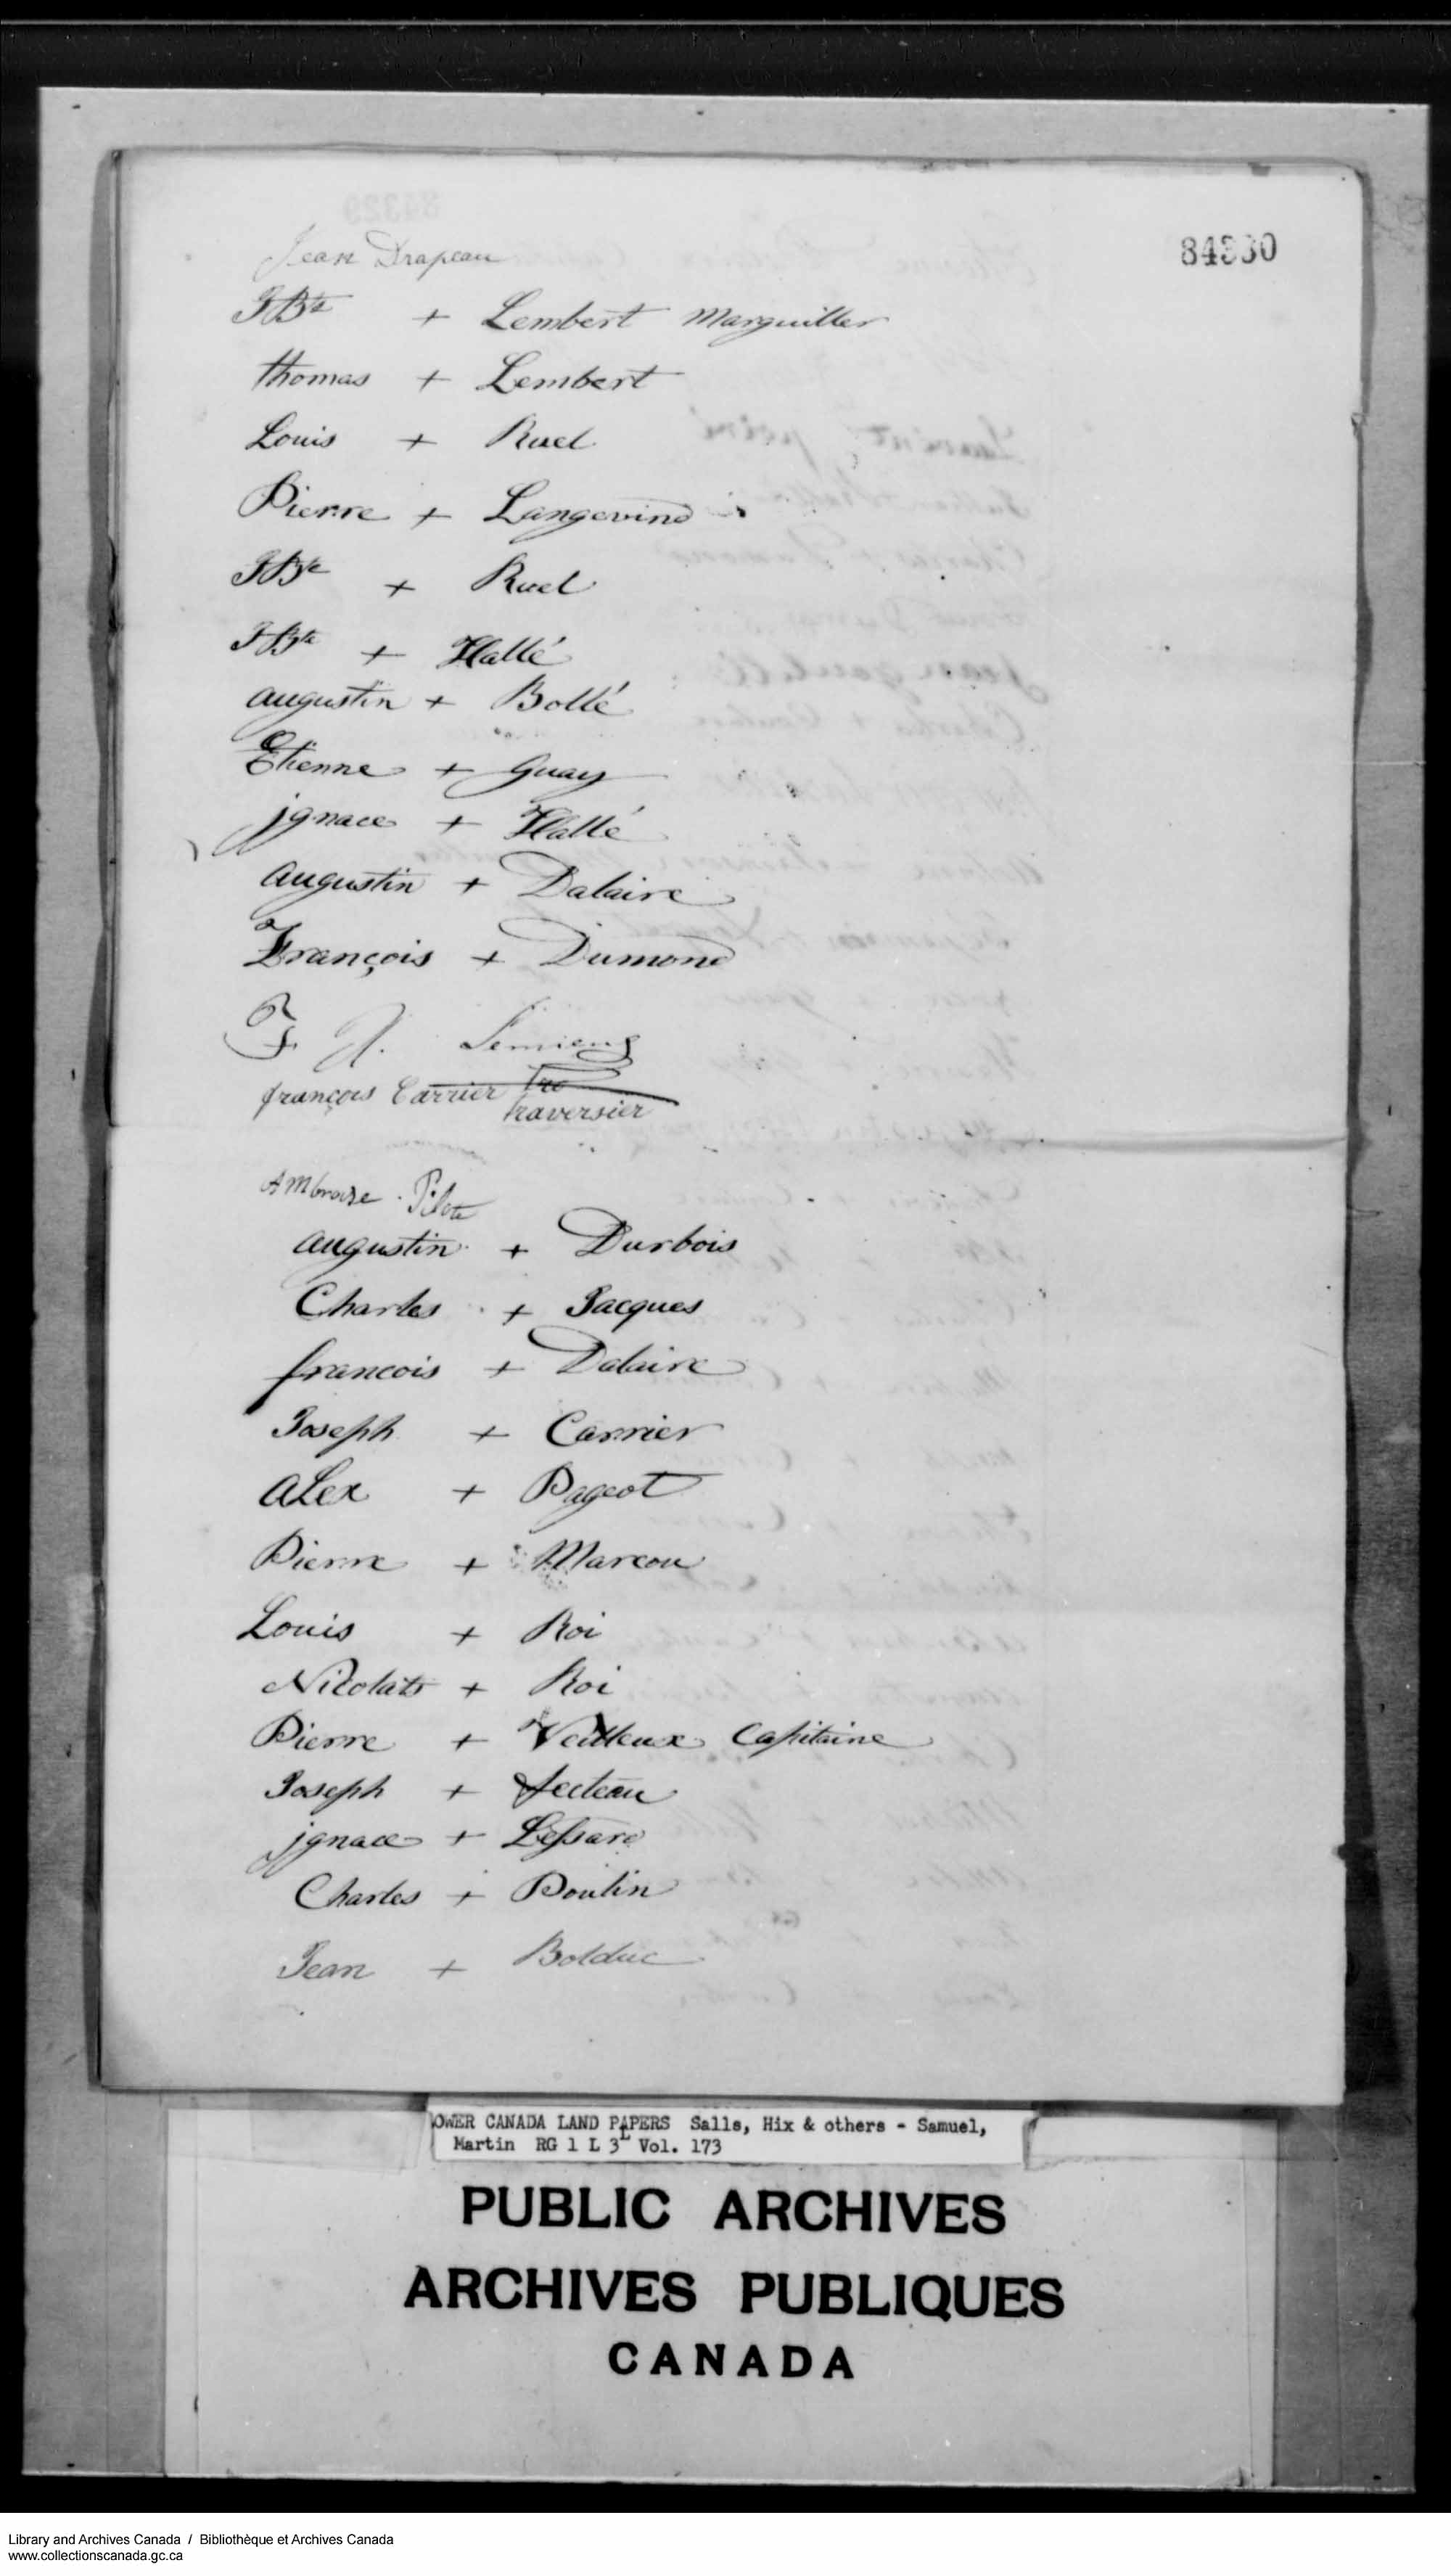 84330
Jean Drapeau
JBte + Lembert Marguiller
thomas + Lembert
Louis + Ruel
Pierre + Langevind
JBte + Ruel
JBte + Hallé
augustin + Bollé
Etienne + Guay
jgnace + Hallé
augustin + Dalaire
François + Dumond
F J. Lemieux
françois Carrier
traversier
Ambroise Pilote
augustin + Durbois
Charles + Jacques
francois + Dalaire
Joseph + Carrier
aLex + Pageot
Pierre + Marcou
Louis + Roi
Nicolats + Roi
Pierre + Veilleux Capitaine
Joseph + fecteau
jgnace + Lessard
Charles + Poulin
Jean + Bolduc
OWER CANADA LAND PAPERS Salls, Hix & others - Samuel,
Martin RG 1 L 3L Vol. 173
PUBLIC ARCHIVES
ARCHIVES PUBLIQUES
CANADA
Library and Archives Canada / Bibliothèque et Archives Canada
www.collectionscanada.gc.ca